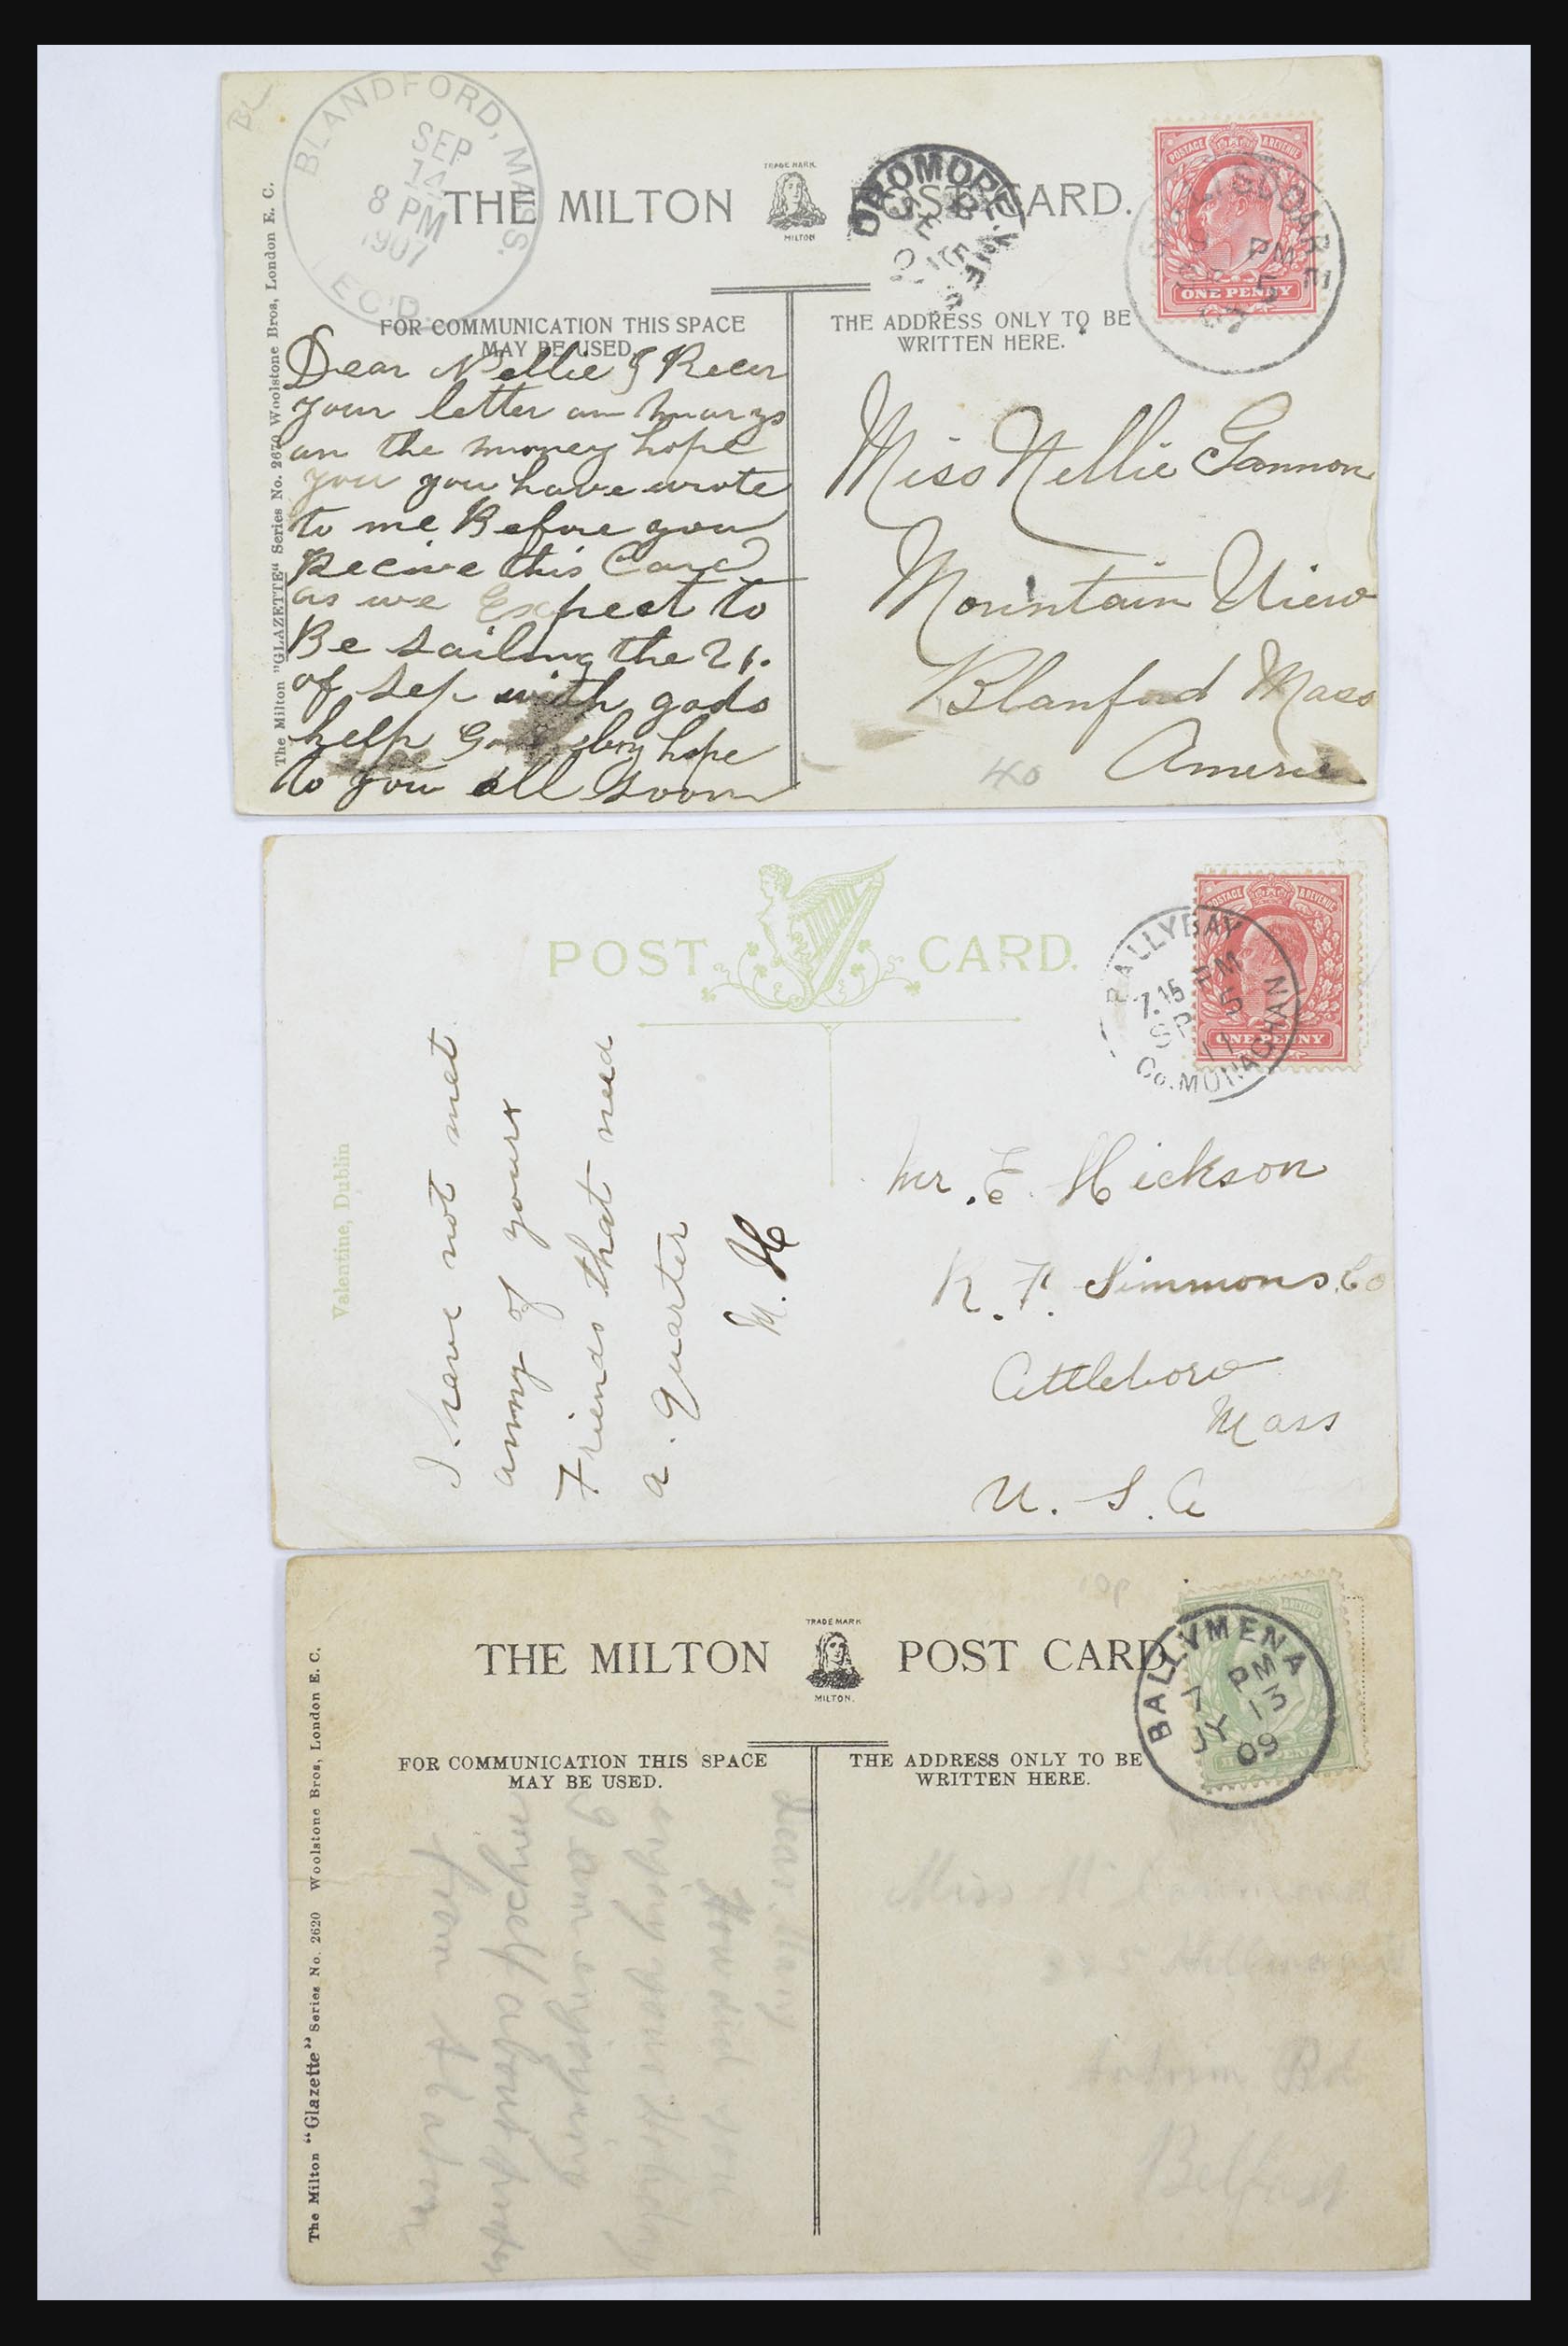 BLANDFORD, MASS.
SEP
8 PM
1907
REC'D.
THE MILTON
TRADE MARK
MILTON
POST CARD.
PM
SE 5
07
ONE PENNY
POSTAGE & REVENUE
FOR COMMUNICATION THIS SPACE
MAY BE USED.
THE ADDRESS ONLY TO BE
WRITTEN HERE.
The Milton "GLAZETTE" Series No. 2670 Woolstone Bros, London E. C.
Dear Nellie I
your letter
an the money hope
you you have wrote
to me Before you
Recive this Card
as we Expect to
Be sailing the 21.
of Sep with gods
help hope
to you all soon
Miss Nellie Gannon
Mountain View
Blanford Mass
40
POST CARD.
POSTAGE & REVENUE
ONE PENNY
BALLYBAY
7.15 PM
SP 5
11
Co. MONAGHAN
Valentine, Dublin
I have not met
anny of yours
Friends that need
a. quarter
M. H
Mr. E. Hickson
R. F. Simmons Co
Attleboro
Mass
U. S. A
THE MILTON
TRADE MARK
MILTON.
POST CARD
BALLYMENA
7 PM
JY 13
09
FOR COMMUNICATION THIS SPACE
MAY BE USED.
THE ADDRESS ONLY TO BE
WRITTEN HERE.
The Milton "Glazette" Series No. 2620 Woolstone Bros, London E. C.
Dear Mary
How did you
enjoy your Holiday
I am enjoying
myself about
from
Miss
Antrim Rd
Belfast